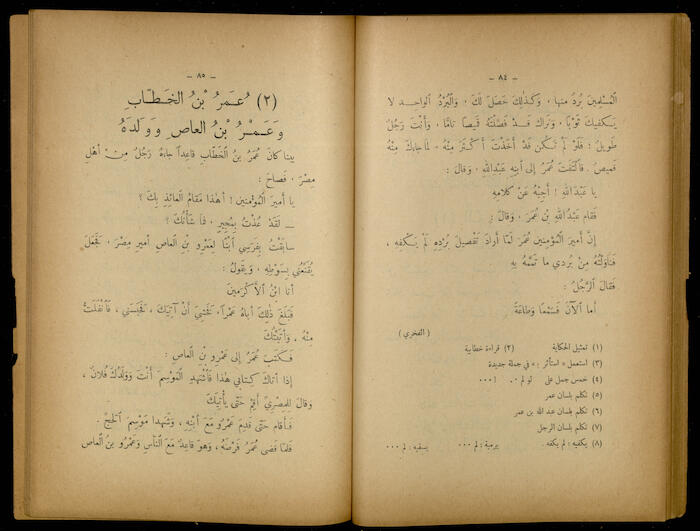 — ٨٤ —
المُسلمينَ بُردٌ منها ، وكذلكَ حَصَلَ لكَ ، والبُرْدُ الواحِد لا
يَكفيكَ ثَوْبًا ، وَنَراكَ قد فَصَّلْتَهُ قَميصًا تامًّا ، وأَنْتَ رَجُلٌ
طَوِيلٌ ؛ فَلَوْ لم تَكُن قَد أَخَذْتَ أَكْثَرَ مِنْهُ لما جاءَكَ مِنْهُ
قَميصٌ . فَالْتَفَتَ عُمَرُ إلى ابنِهِ عَبدِاللهِ ، وقالَ :
يا عَبدَاللهِ ! أَجِبْهُ عَنْ كلامِهِ
فَقامَ عبدُاللهِ بْنُ عُمَرَ ، وَقالَ :
إنَّ أَميرَ المُؤْمِنينَ عُمَرَ لَمّا أَرادَ تَفْصيلَ بُرْدِهِ لَمْ يَكْفِهِ ،
فَناوَلْتُهُ مِنْ بُردي ما تَمَّمَهُ بِهِ
فَقالَ الرَّجُلُ :
أما الْآنَ فَسَمْعًا وَطاعَةً
( الفخري )
(١) تمثيل الحكاية (٢) قراءة خطابية
(٣) استعمل « استأثر » في جملة جديدة
(٤) خمس جمل على لو لم ٠٠ ٠٠٠!
(٥) تكلم بلسان عمر
(٦) تكلم بلسان عبد الله بن عمر
(٧) تكلم بلسان الرجل
(٨) يكفيه : لم يكفه . يرميه : لم ٠٠٠ يسقيه : لم ٠٠٠
— ٨٥ —
(٢) عُمَرُ بْنُ الخَطّابِ
وَعَمْرُو بْنُ العاصِ وَوَلَدُهُ
بينا كانَ عُمَرُ بنُ الخَطّابِ قاعِدًا جاءَهُ رَجُلٌ مِنْ أهلِ
مِصْرَ ، فَصاحَ :
يا أَميرَ المُؤمنينِ ! أهٰذا مَقامُ العائِذِ بِكَ ؟
— لَقَدْ عُذْتَ بِمُجِيرٍ ، فَما شَأْنُكَ ؟
سابَقْتُ بِفَرَسِي ابْنًا لِعَمْرِو بنِ العاصِ أميرِ مِصْرَ ، فَجَعَلَ
يُقَنِّعُنِي بِسَوْطِهِ ، وَيَقُولُ :
أنا ابْنُ الأَكْرَمِينَ
فَبَلَغَ ذٰلِكَ أَباهُ عَمْرًا ، فَخَشِيَ أَنْ آتِيَكَ ، فَحَبَسَنِي ، فَانْفَلَتُّ
مِنْهُ ، وَأَتَيْتُكَ
فَكَتَبَ عُمَرُ إلى عَمْرِو بْنِ العاصِ :
إذا أَتاكَ كِتابي هٰذا فَاشْهَدِ المَوْسِمَ أَنْتَ وَوَلَدُكَ فُلانٌ ،
وَقالَ لِلْمِصْرِيِّ أَقِمْ حَتّى يأْتِيَكَ
فَأَقامَ حَتّى قَدِمَ عَمْرٌو مَعَ ابْنِهِ ، وَشَهِدا مَوْسِمَ الحَجِّ .
فَلَمّا قَضى عُمَرُ فَرْضَهُ ، وَهوَ قاعِدٌ مَعَ النّاسِ وَعَمْرُو بنُ العاصِ